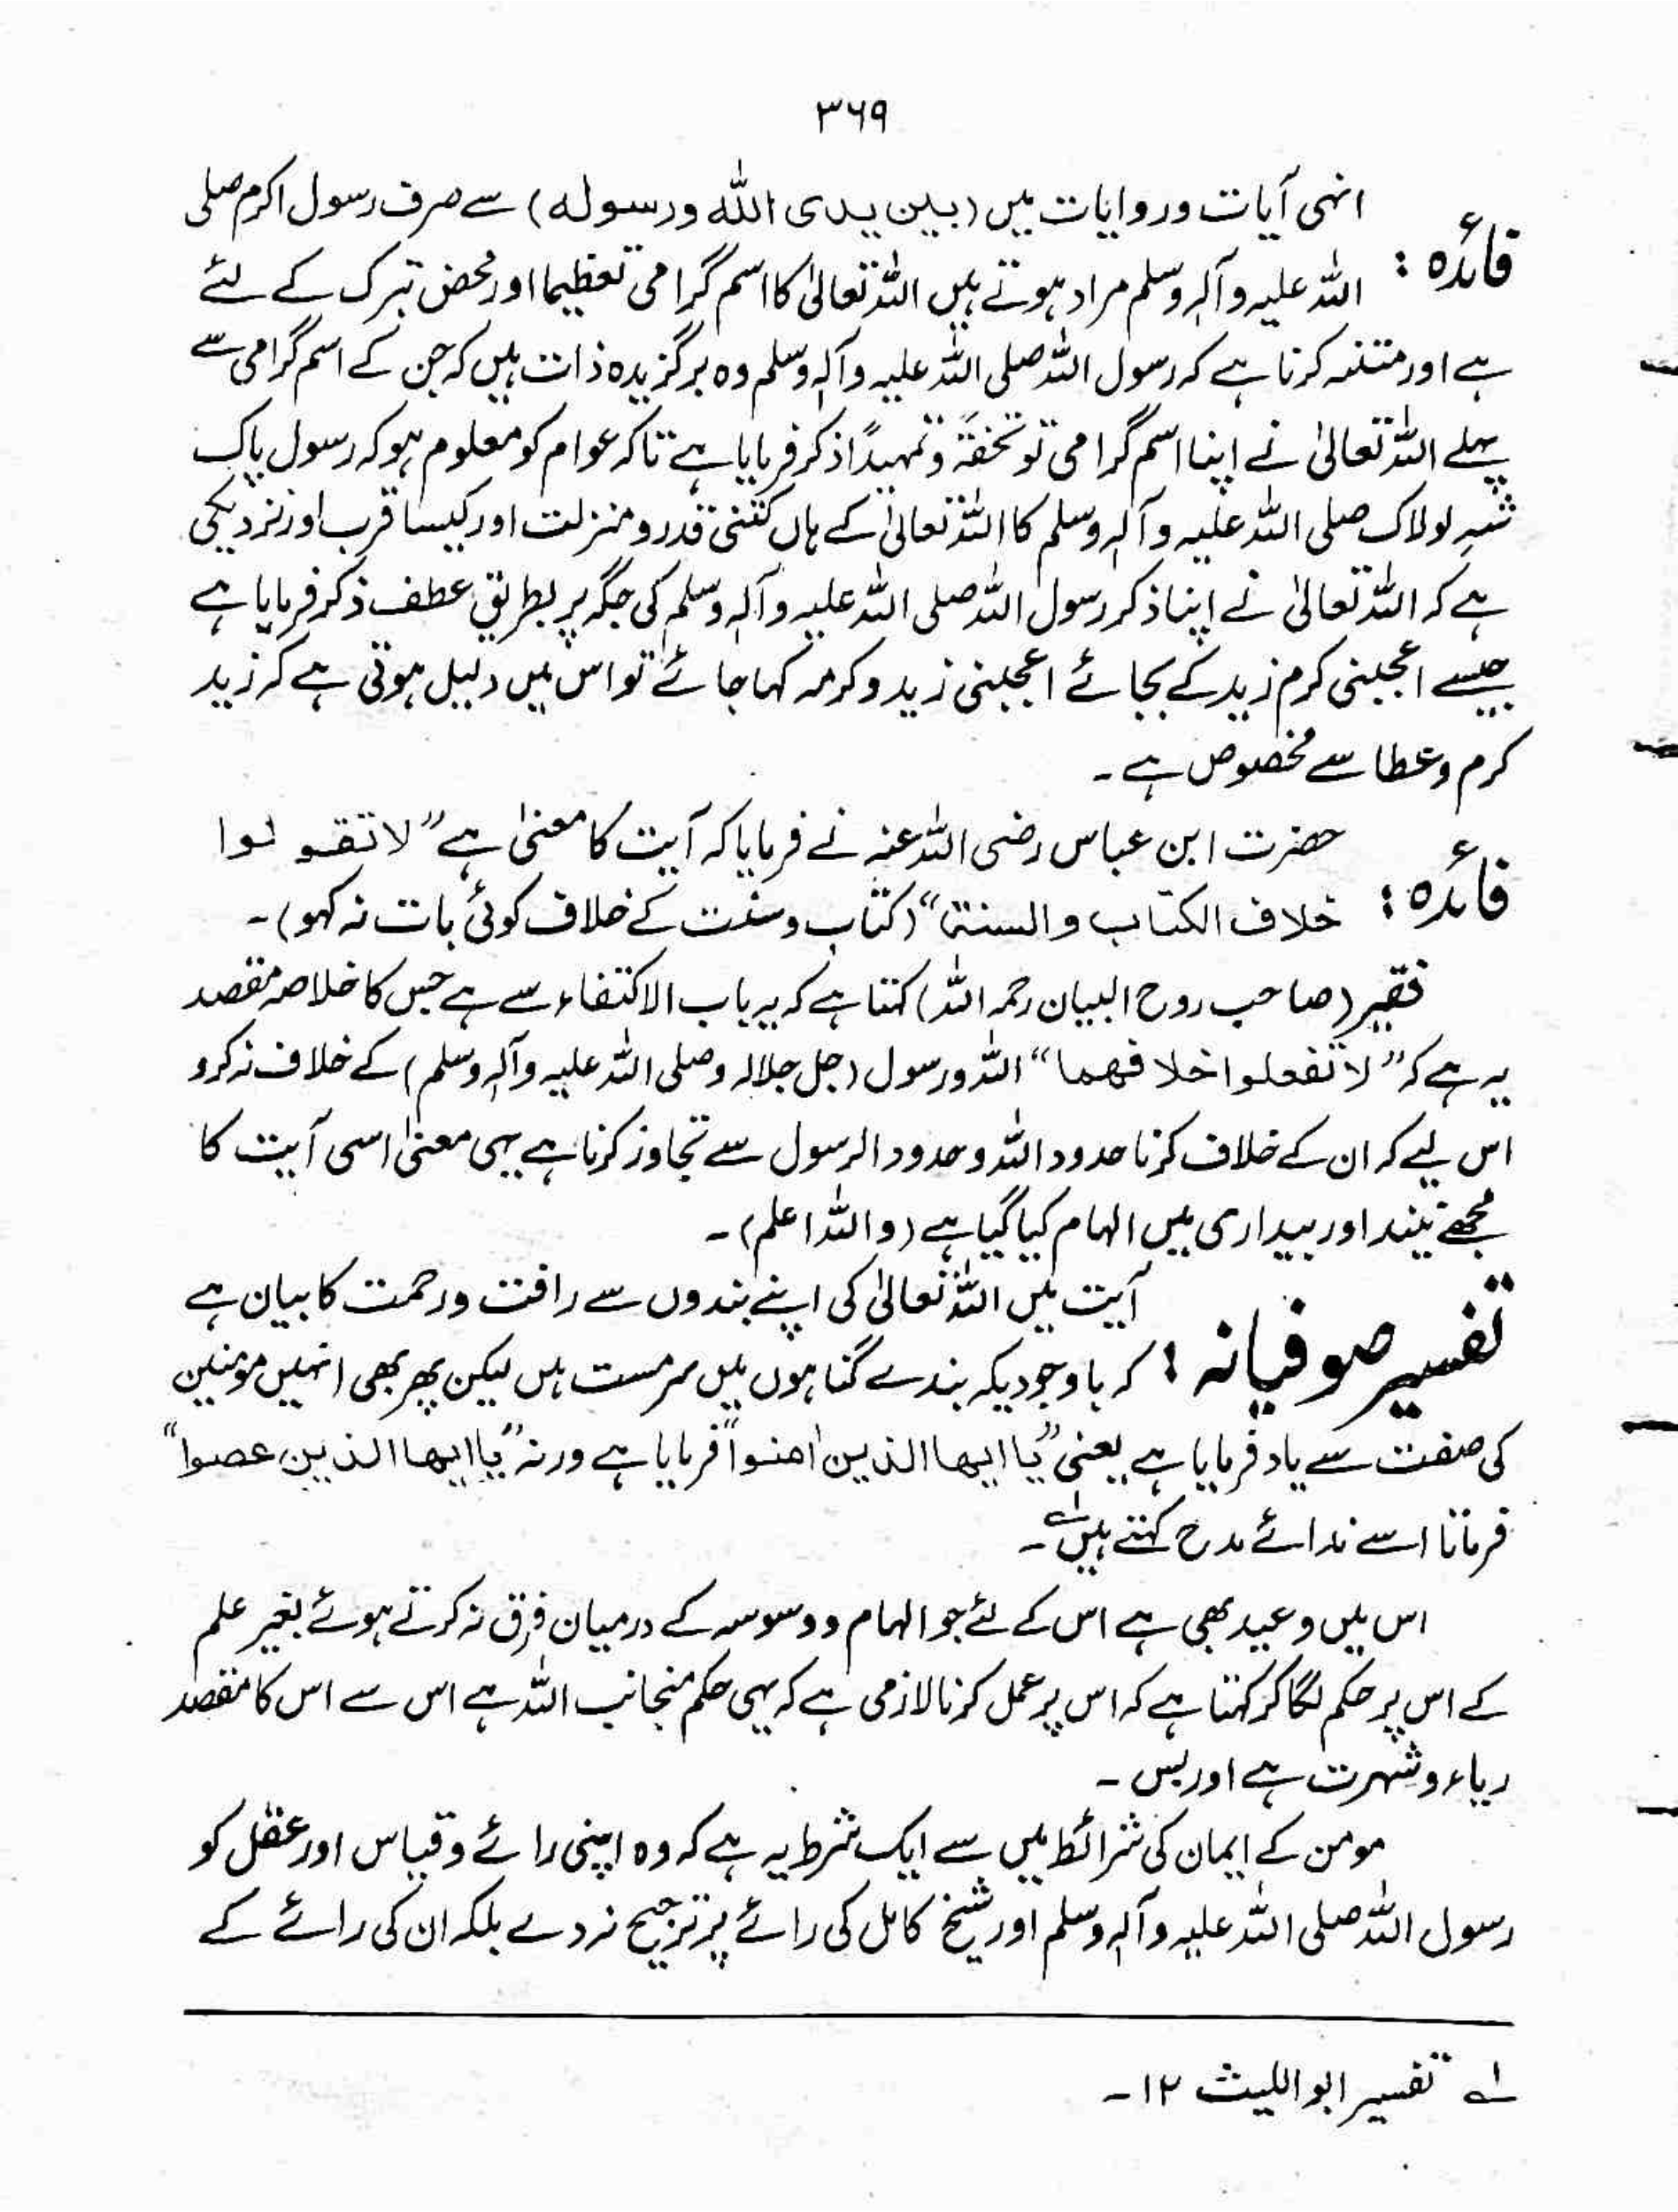 ۳۶۹
انہی آیات و روایات میں (بین یدی اللہ ورسولہ) سے صرف رسول اکرم صلی
فائدہ : اللہ علیہ وآلہٖ وسلم مراد ہوتے ہیں اللہ تعالیٰ کا اسم گرامی تعظیما اور محض تبرک کے لئے
ہے اور متنبہ کرنا ہے کہ رسول اللہ صلی اللہ علیہ وآلہٖ وسلم وہ برگزیدہ ذات ہیں کہ جن کے اسم گرامی سے
پہلے اللہ تعالیٰ نے اپنا اسم گرامی تو تحفۃً و تمہیداً ذکر فرمایا ہے تاکہ عوام کو معلوم ہو کہ رسول پاک
شہِ لولاک صلی اللہ علیہ وآلہٖ وسلم کا اللہ تعالیٰ کے ہاں کتنی قدر و منزلت اور کیسا قرب اور نزدیکی
ہے کہ اللہ تعالیٰ نے اپنا ذکر رسول اللہ صلی اللہ علیہ وآلہٖ وسلم کی جگہ پر بطریق عطف ذکر فرمایا ہے
جیسے اعجبنی کرم زید کے بجائے اعجبنی زید و کرمہ کہا جائے تو اس میں دلیل ہوتی ہے کہ زید
کرم و عطا سے مخصوص ہے ۔
حضرت ابن عباس رضی اللہ عنہ نے فرمایا کہ آیت کا معنیٰ ہے ”لا تقولوا
فائدہ : خلاف الکتاب والسنۃ“ (کتاب و سنت کے خلاف کوئی بات نہ کہو) ۔
فقیر (صاحب روح البیان رحمہ اللہ) کہتا ہے کہ یہ باب الاکتفاء سے ہے جس کا خلاصہ مقصد
یہ ہے کہ ”لا تفعلوا خلافھما“ اللہ و رسول (جل جلالہ وصلی اللہ علیہ وآلہٖ وسلم) کے خلاف نہ کرو
اس لیے کہ ان کے خلاف کرنا حدود اللہ و حدود الرسول سے تجاوز کرنا ہے یہی معنیٰ اسی آیت کا
مجھے نیند اور بیداری میں الہام کیا گیا ہے (واللہ اعلم) ۔
آیت میں اللہ تعالیٰ کی اپنے بندوں سے رافت و رحمت کا بیان ہے
تفسیر صوفیانہ : کہ باوجودیکہ بندے گناہوں میں سرمست ہیں لیکن پھر بھی انہیں مومنین
کی صفت سے یاد فرمایا ہے یعنی ”یا ایھا الذین اٰمنوا“ فرمایا ہے ورنہ ”یا ایھا الذین عصوا“
فرماتا اسے ندائے مدح کہتے ہیں ۱؎ ۔
اس میں وعید بھی ہے اس کے لئے جو الہام و وسوسہ کے درمیان فرق نہ کرتے ہوئے بغیر علم
کے اس پر حکم لگا کر کہتا ہے کہ اس پر عمل کرنا لازمی ہے کہ یہی حکم منجانب اللہ ہے اس سے اس کا مقصد
ریاء و شہرت ہے اور بس ۔
مومن کے ایمان کی شرائط میں سے ایک شرط یہ ہے کہ وہ اپنی رائے و قیاس اور عقل کو
رسول اللہ صلی اللہ علیہ وآلہٖ وسلم اور شیخ کامل کی رائے پر ترجیح نہ دے بلکہ ان کی رائے کے
۱؎ تفسیر ابو اللیث ۱۲ ۔